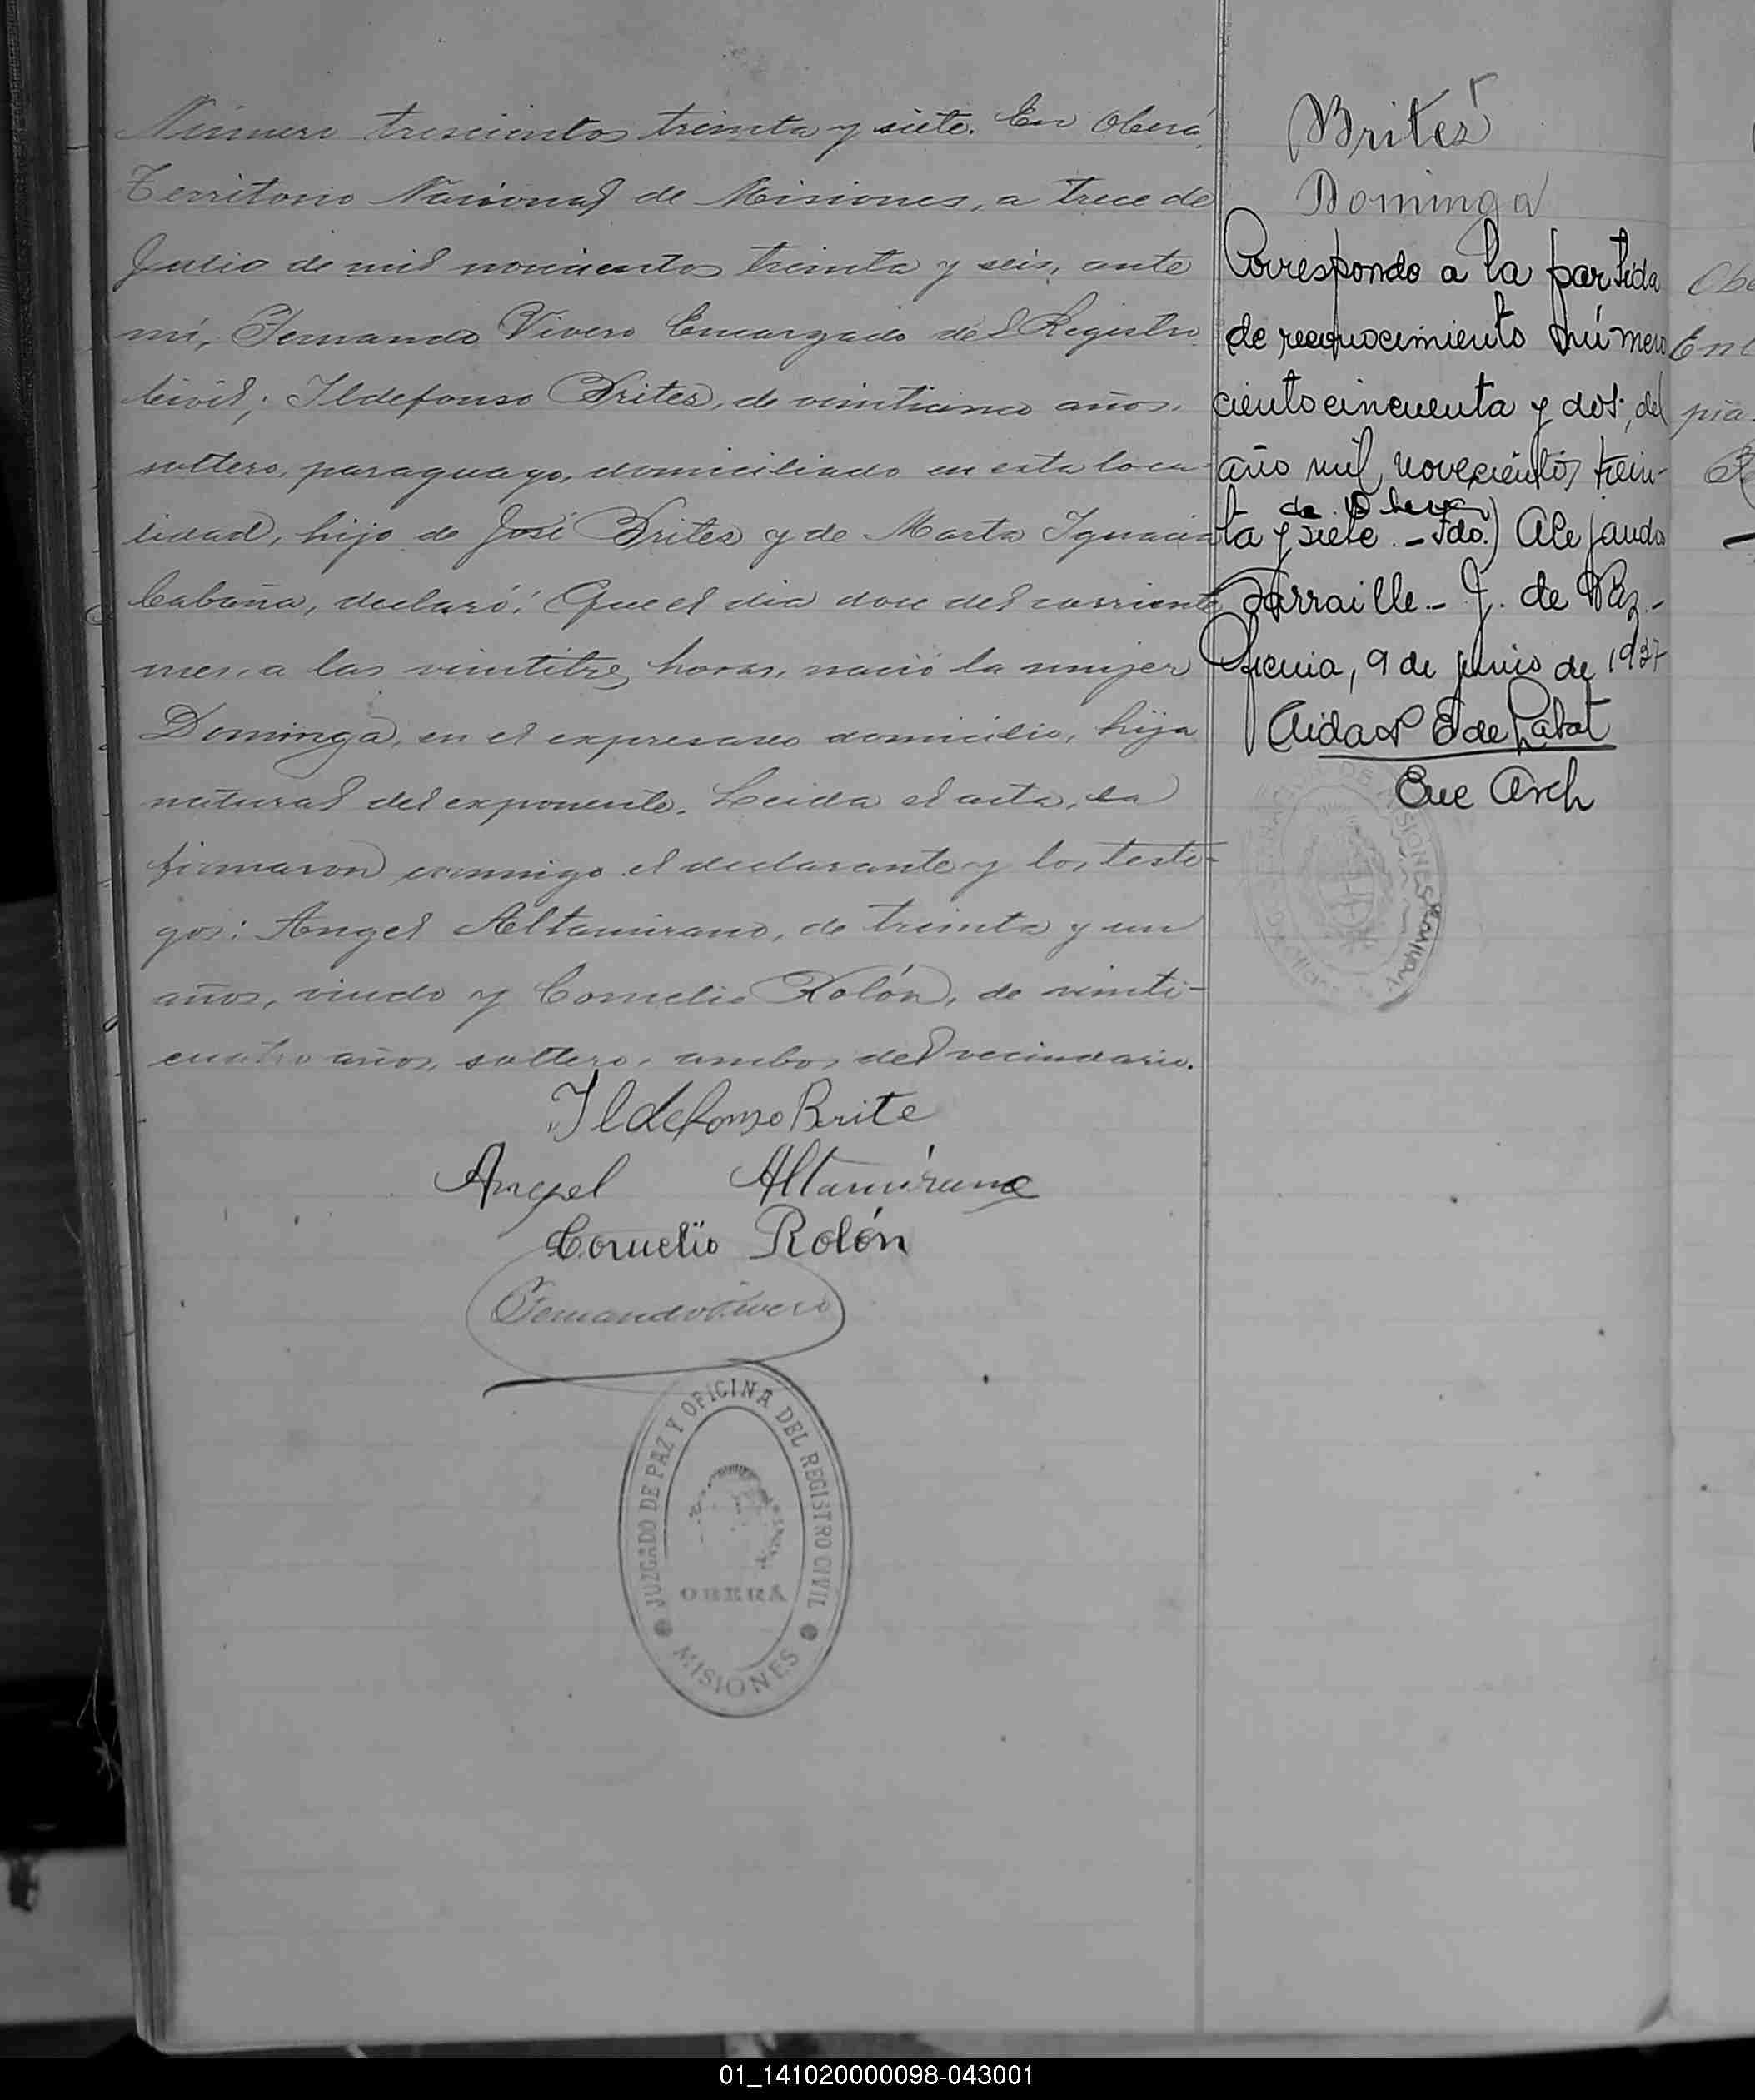 Número trescientos treinta y siete. En Oberá,
Territorio Nacional de Misiones, a trece de
Julio de mil novecientos treinta y seis, ante
mí, Fernando Vivero Encargado del Registro
Civil; Ildefonso Brites, de veinticinco años,
soltero, paraguayo, domiciliado en esta loca-
lidad, hijo de José Brites y de Marta Ignacia
Cabaña, declaró: Que el dia doce del corriente
mes, a las veintitres horas, nació la mujer
Dominga, en el expresado domicilio, hija
natural del exponente. Leida el acta, la
firmaron conmigo el declarante y los testi-
gos: Angel Altamirano, de treinta y un
años, viudo y Cornelio Rolón, de veinti-
cuatro años, soltero, ambos del vecindario.
Ildefonso Brite
Angel Altamirano
Cornelio Rolón
Fernando Vivero
JUZGADO DE PAZ Y OFICINA DEL REGISTRO CIVIL
OBERÁ
MISIONES
Brites
Dominga
Correspondo a la partida
de reconocimiento número
ciento cincuenta y dos, del
año mil novecientos trein-
de Oberá
ta y siete.- Fdo.) Alejandro
Sarraille.- J. de Paz.-
Oficina, 9 de junio de 1937
Aida P E de Labat
Enc Arch
MISIONES
Archivo
Obe
En
pia
01_141020000098-043001